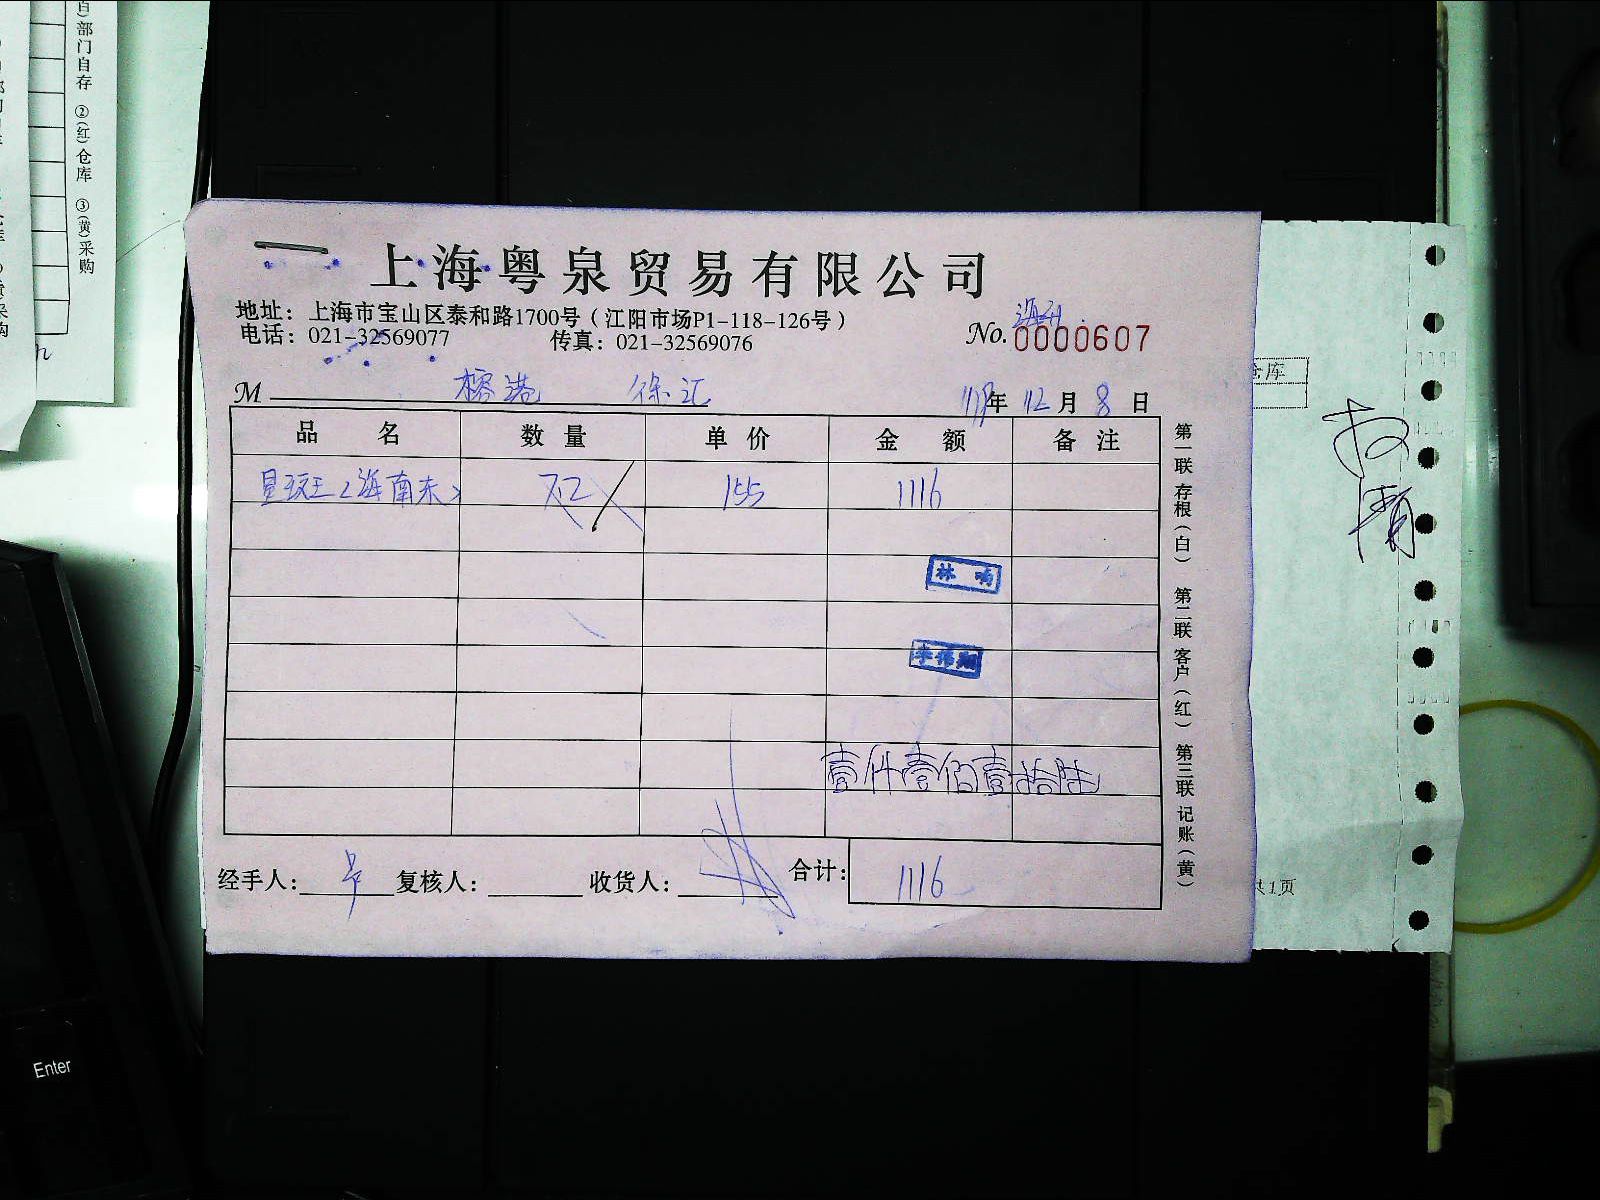 上海粤泉贸易有限公司
地址：上海市宝山区泰和路1700号（江阳市场P1-118-126号）
电话：021-32569077 传真：021-32569076
No. 0000607
M 榕港 徐汇
年 12月 8日
品名 数量 单价 金额 备注
星斑（海南东） 7.2 155 1116
林
壹仟壹佰壹拾陆
经手人： 复核人： 收货人： 合计： 1116
第一联 存根（白） 第二联 客户（红） 第三联 记账（黄）
部门自存 ②(红)仓库 ③(黄)采购
仓库
共1页
Enter